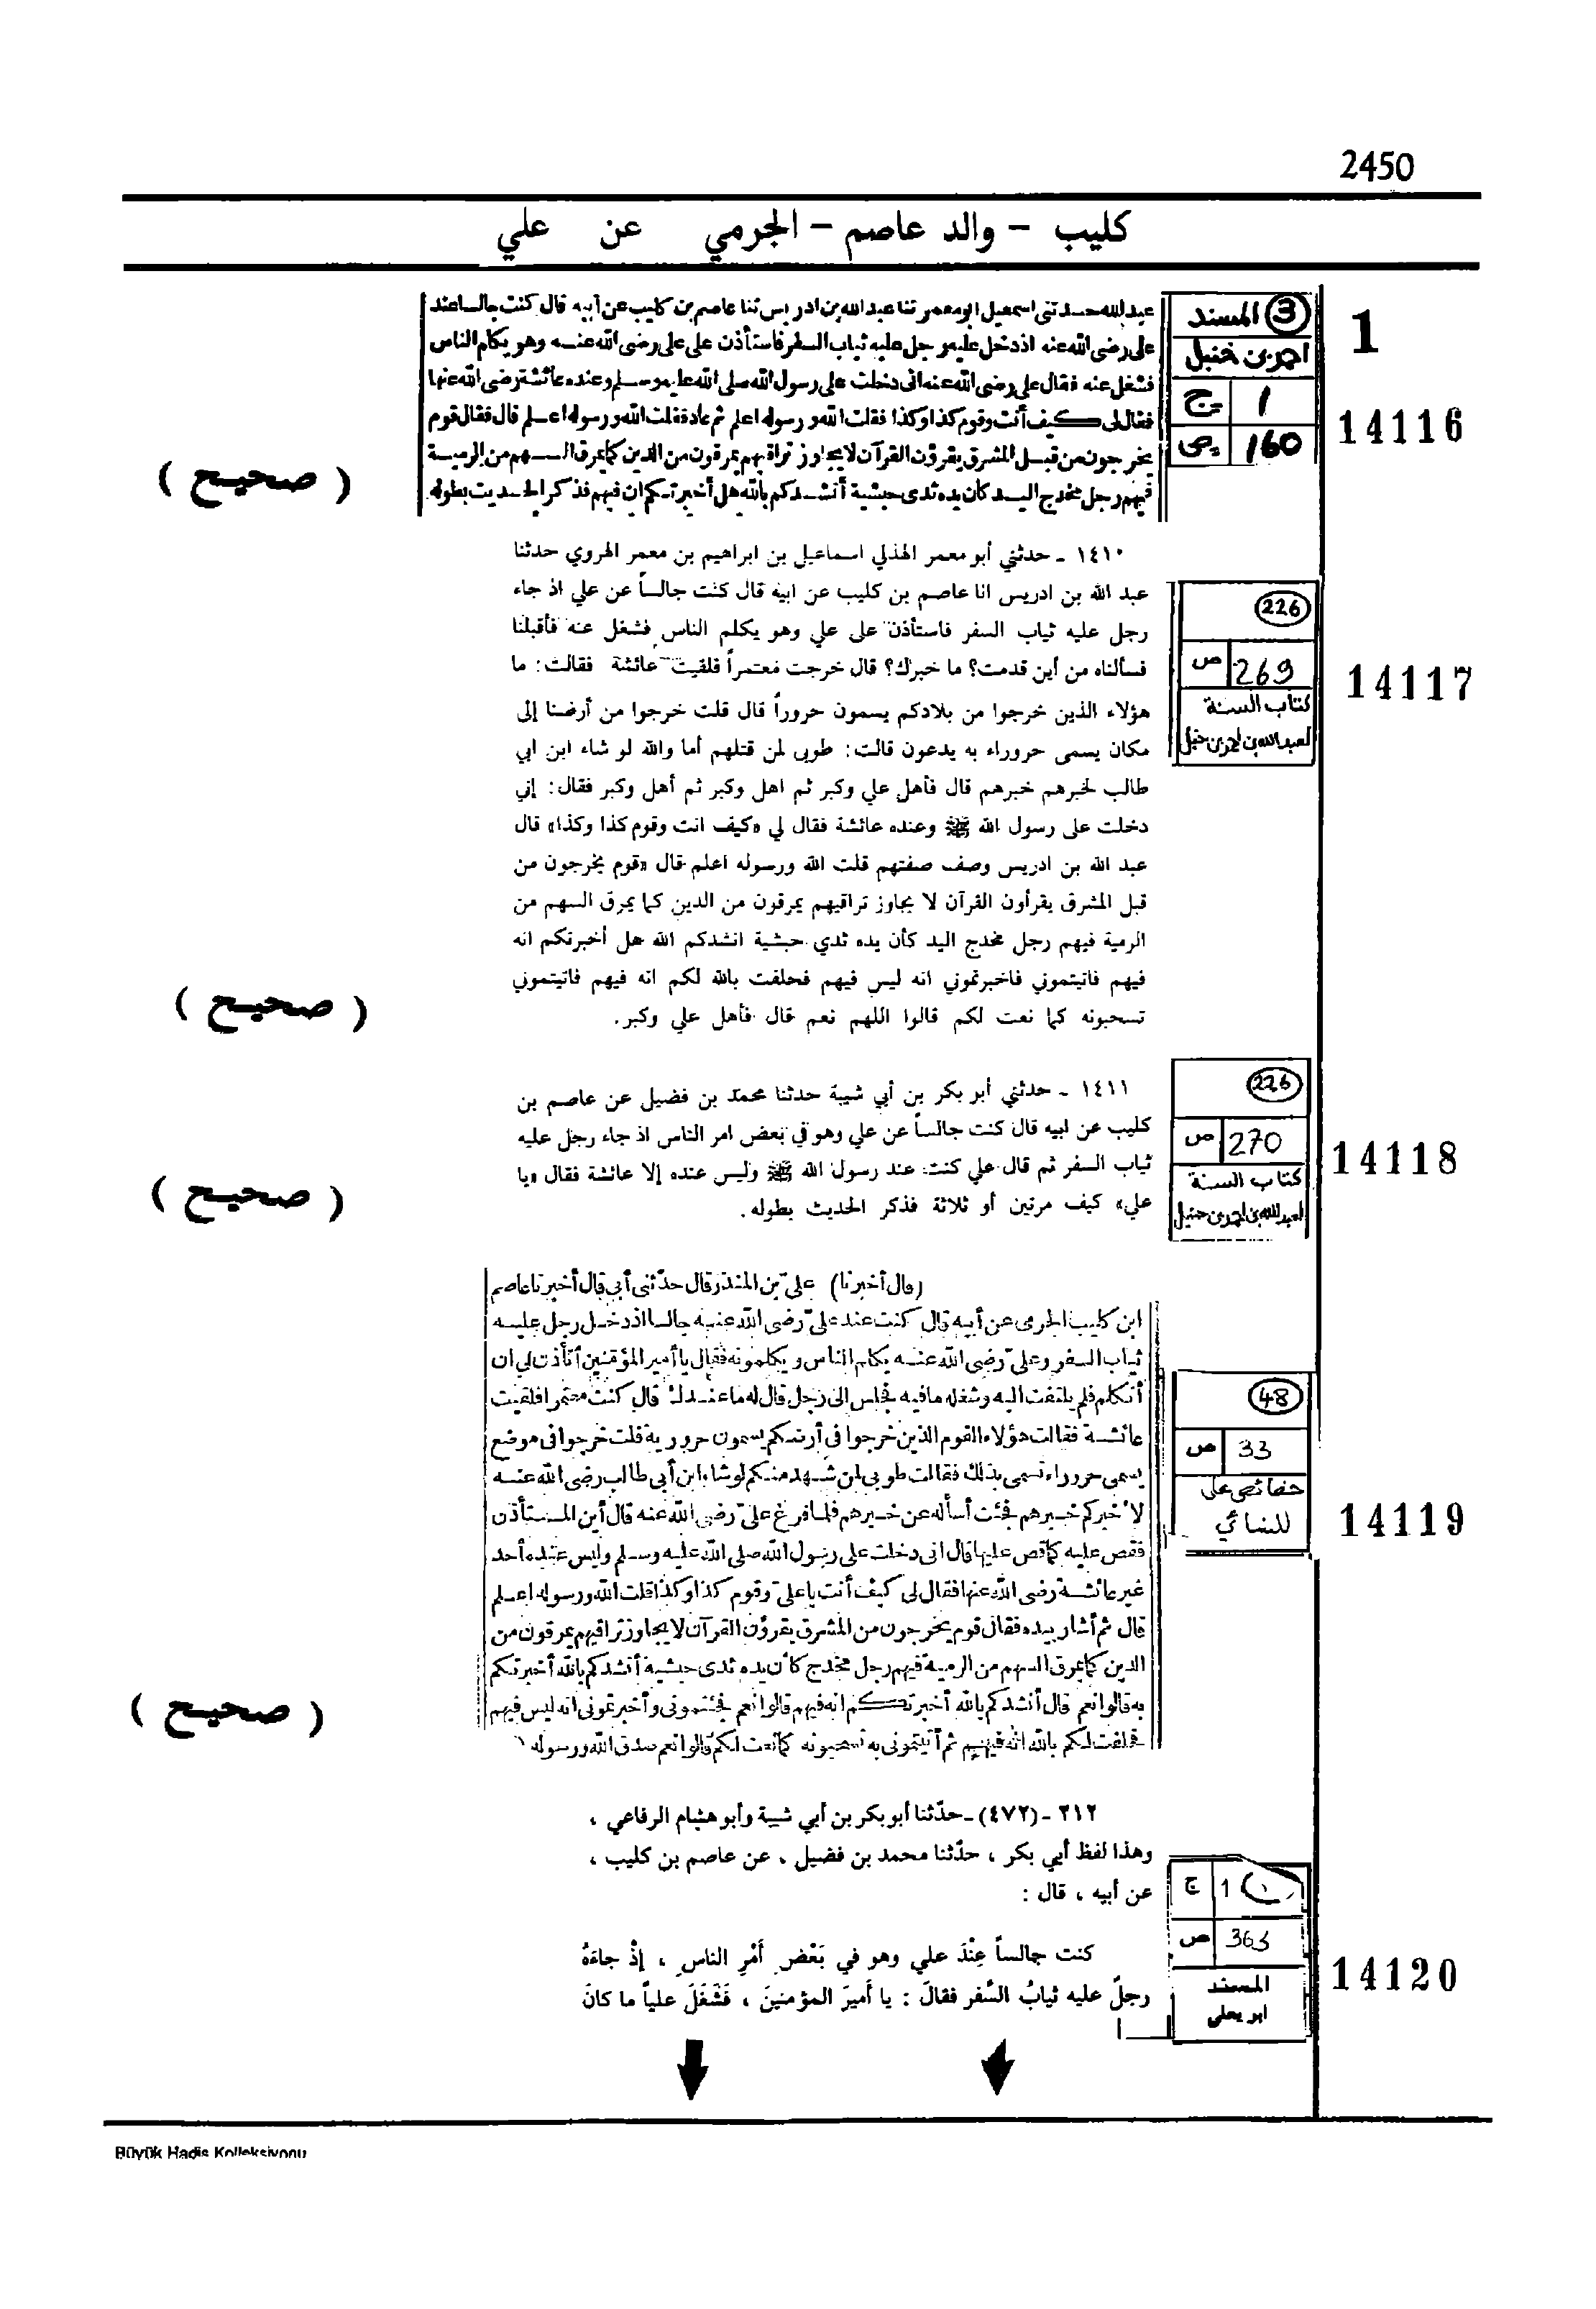 2450
كليب - والد عاصم - الجرمي عن علي
1
③ المسند
احمد بن حنبل
ج 1
ص 160
14116
عبدالله حدثني اسمعيل ابو معمر ثنا عبد الله بن ادريس ثنا عاصم بن كليب عن أبيه قال كنت جالسا عند
على رضى الله عنه اذ دخل عليه رجل عليه ثياب السفر فاستأذن على على رضى الله عنه وهو يكلم الناس
فشغل عنه فقال على رضى الله عنه انى دخلت على رسول الله صلى الله عليه وسلم وعنده عائشة رضى الله عنها
فقال لى كيف أنت وقوم كذا وكذا فقلت الله ورسوله اعلم ثم عاد فقلت الله ورسوله اعلم قال فقال قوم
يخرجون من قبل المشرق يقرؤن القرآن لا يجاوز تراقيهم يمرقون من الدين كما يمرق السهم من الرمية
فيهم رجل مخدج اليد كان يده ثدى حبشية أنشدكم بالله هل أخبرتكم ان فيهم فذكر الحديث بطوله
( صحيح )
١٤١٠ - حدثني أبو معمر الهذلي اسماعيل بن ابراهيم بن معمر الهروي حدثنا
عبد الله بن ادريس انا عاصم بن كليب عن ابيه قال كنت جالساً عن علي اذ جاء
رجل عليه ثياب السفر فاستأذن على علي وهو يكلم الناس فشغل عنه فأقبلنا
فسألناه من أين قدمت؟ ما خبرك؟ قال خرجت معتمراً فلقيت عائشة فقالت: ما
هؤلاء الذين خرجوا من بلادكم يسمون حروراً قال قلت خرجوا من أرضنا إلى
مكان يسمى حروراء به يدعون قالت: طوبى لمن قتلهم أما والله لو شاء ابن ابي
طالب لخبرهم خبرهم قال فأهل علي وكبر ثم اهل وكبر ثم أهل وكبر فقال: إني
دخلت على رسول الله ﷺ وعنده عائشة فقال لي «كيف انت وقوم كذا وكذا» قال
عبد الله بن ادريس وصف صفتهم قلت الله ورسوله اعلم قال «قوم يخرجون من
قبل المشرق يقرأون القرآن لا يجاوز تراقيهم يمرقون من الدين كما يمرق السهم من
الرمية فيهم رجل مخدج اليد كأن يده ثدي حبشية انشدكم الله هل أخبرتكم انه
فيهم فاتيتموني فاخبرتموني انه ليس فيهم فحلفت بالله لكم انه فيهم فاتيتموني
تسحبونه كما نعت لكم قالوا اللهم نعم قال فأهل علي وكبر.
226
ص 269
كتاب السنة
لعبدالله بن احمد بن حنبل
14117
( صحيح )
١٤١١ - حدثني أبر بكر بن أبي شيبة حدثنا محمد بن فضيل عن عاصم بن
كليب عن ابيه قال كنت جالساً عن علي وهو في بعض امر الناس اذ جاء رجل عليه
ثياب السفر ثم قال علي كنت عند رسول الله ﷺ وليس عنده إلا عائشة فقال «يا
علي» كيف مرتين أو ثلاثة فذكر الحديث بطوله.
226
ص 270
كتاب السنة
لعبدالله بن احمد بن حنبل
14118
( صحيح )
(قال أخبرنا) علىّ بن المنذر قال حدّثنى أبى قال أخبرنا عاصم
ابن كليب الجرمى عن أبيه قال كنت عند علىّ رضى الله عنه جالسا اذ دخل رجل عليه
ثياب السفر وعلىّ رضى الله عنه يكلم الناس ويكلمونه فقال يا أمير المؤمنين أتأذن لى ان
أتكلم فلم يلتفت اليه وشغله ما فيه فجلس الى رجل قال له ما عندك قال كنت معتمرا فلقيت
عائشة فقالت هؤلاء القوم الذين خرجوا فى أرضكم يسمون حرورية قلت خرجوا فى موضع
يسمى حروراء تسمى بذلك فقالت طوبى لمن شهد منكم لو شاء ابن أبى طالب رضى الله عنه
لأخبركم خبرهم فجئت أسأله عن خبرهم فلما فرغ علىّ رضى الله عنه قال أين المستأذن
فقص عليه كما قص عليها قال انى دخلت على رسول الله صلى الله عليه وسلم وليس عنده أحد
غير عائشة رضى الله عنها فقال لى كيف أنت يا علىّ وقوم كذا وكذا قلت الله ورسوله اعلم
قال ثم أشار بيده فقال قوم يخرجون من المشرق يقرؤن القرآن لا يجاوز تراقيهم يمرقون من
الدين كما يمرق السهم من الرمية فيهم رجل مخدج كأن يده ثدى حبشية أنشدكم بالله أخبرتكم
به قالوا نعم قال أنشدكم بالله أخبرتكم انه فيهم قالوا نعم فجئتمونى وأخبرتمونى انه ليس فيهم
فحلفت لكم بالله انه فيهم ثم أتيتمونى به تسحبونه كما نعت لكم قالوا نعم صدق الله ورسوله
48
ص 33
خصائص علي
للنسائي
14119
( صحيح )
٢١٢ - (٤٧٢) - حدّثنا أبو بكر بن أبي شيبة وأبو هشام الرفاعي ،
وهذا لفظ أبي بكر ، حدّثنا محمد بن فضيل ، عن عاصم بن كليب ،
عن أبيه ، قال :
كنت جالساً عِنْدَ علي وهو في بَعْضِ أَمْرِ الناسِ ، إذْ جاءَهُ
رجلٌ عليه ثيابُ السَّفر فقالَ : يا أَميرَ المؤمنينَ ، فَشَغَلَ علياً ما كانَ
ج 1
ص 363
المسند
ابو يعلى
14120
Büyük Hadis Kolleksiyonu